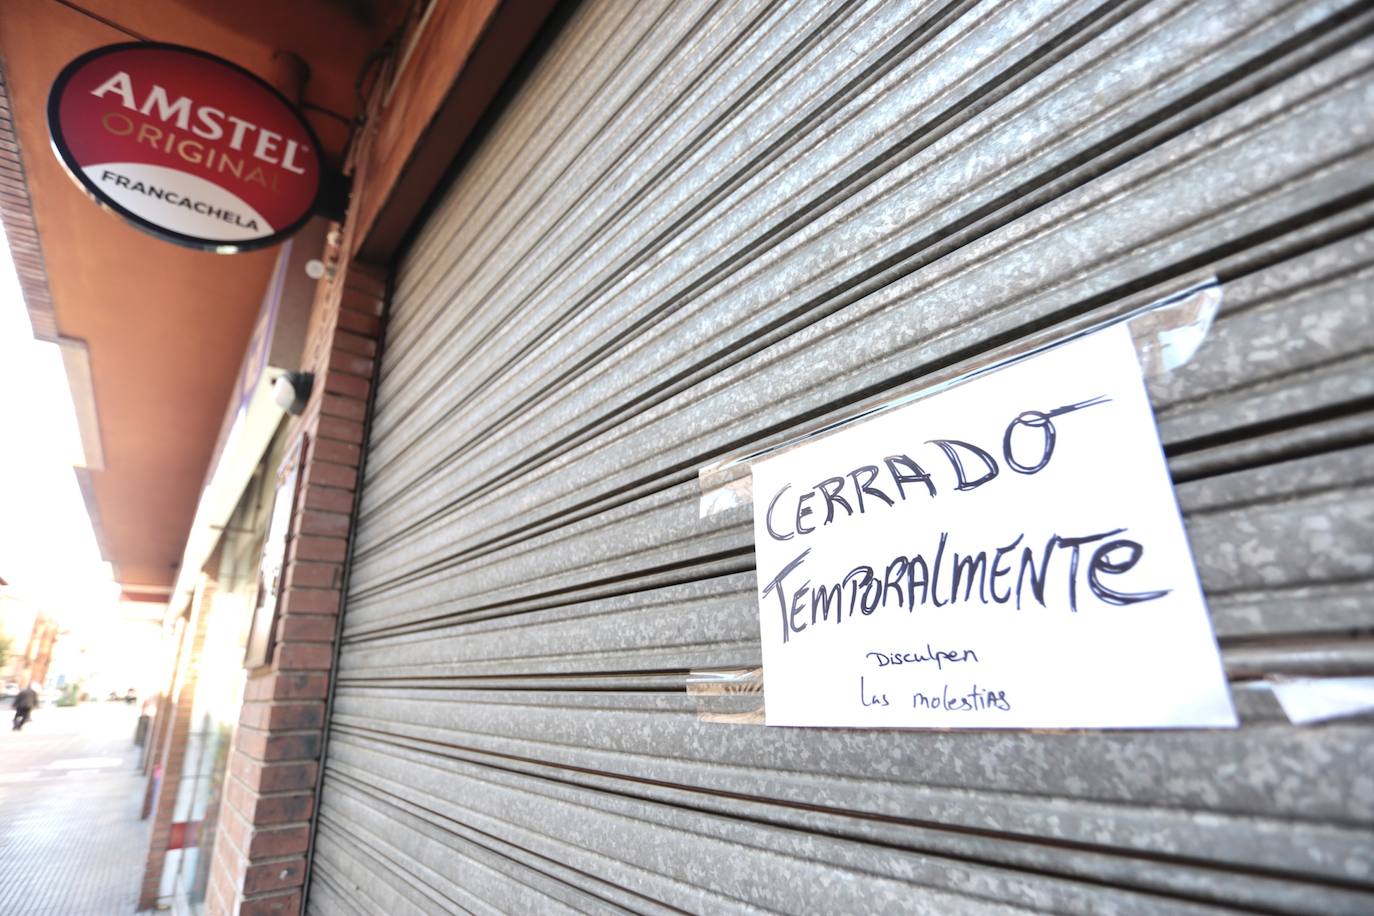 AMSTEL
ORIGINAL
FRANCACHELA
CERRADO
TEMPORALMENTE
Disculpen
las molestias